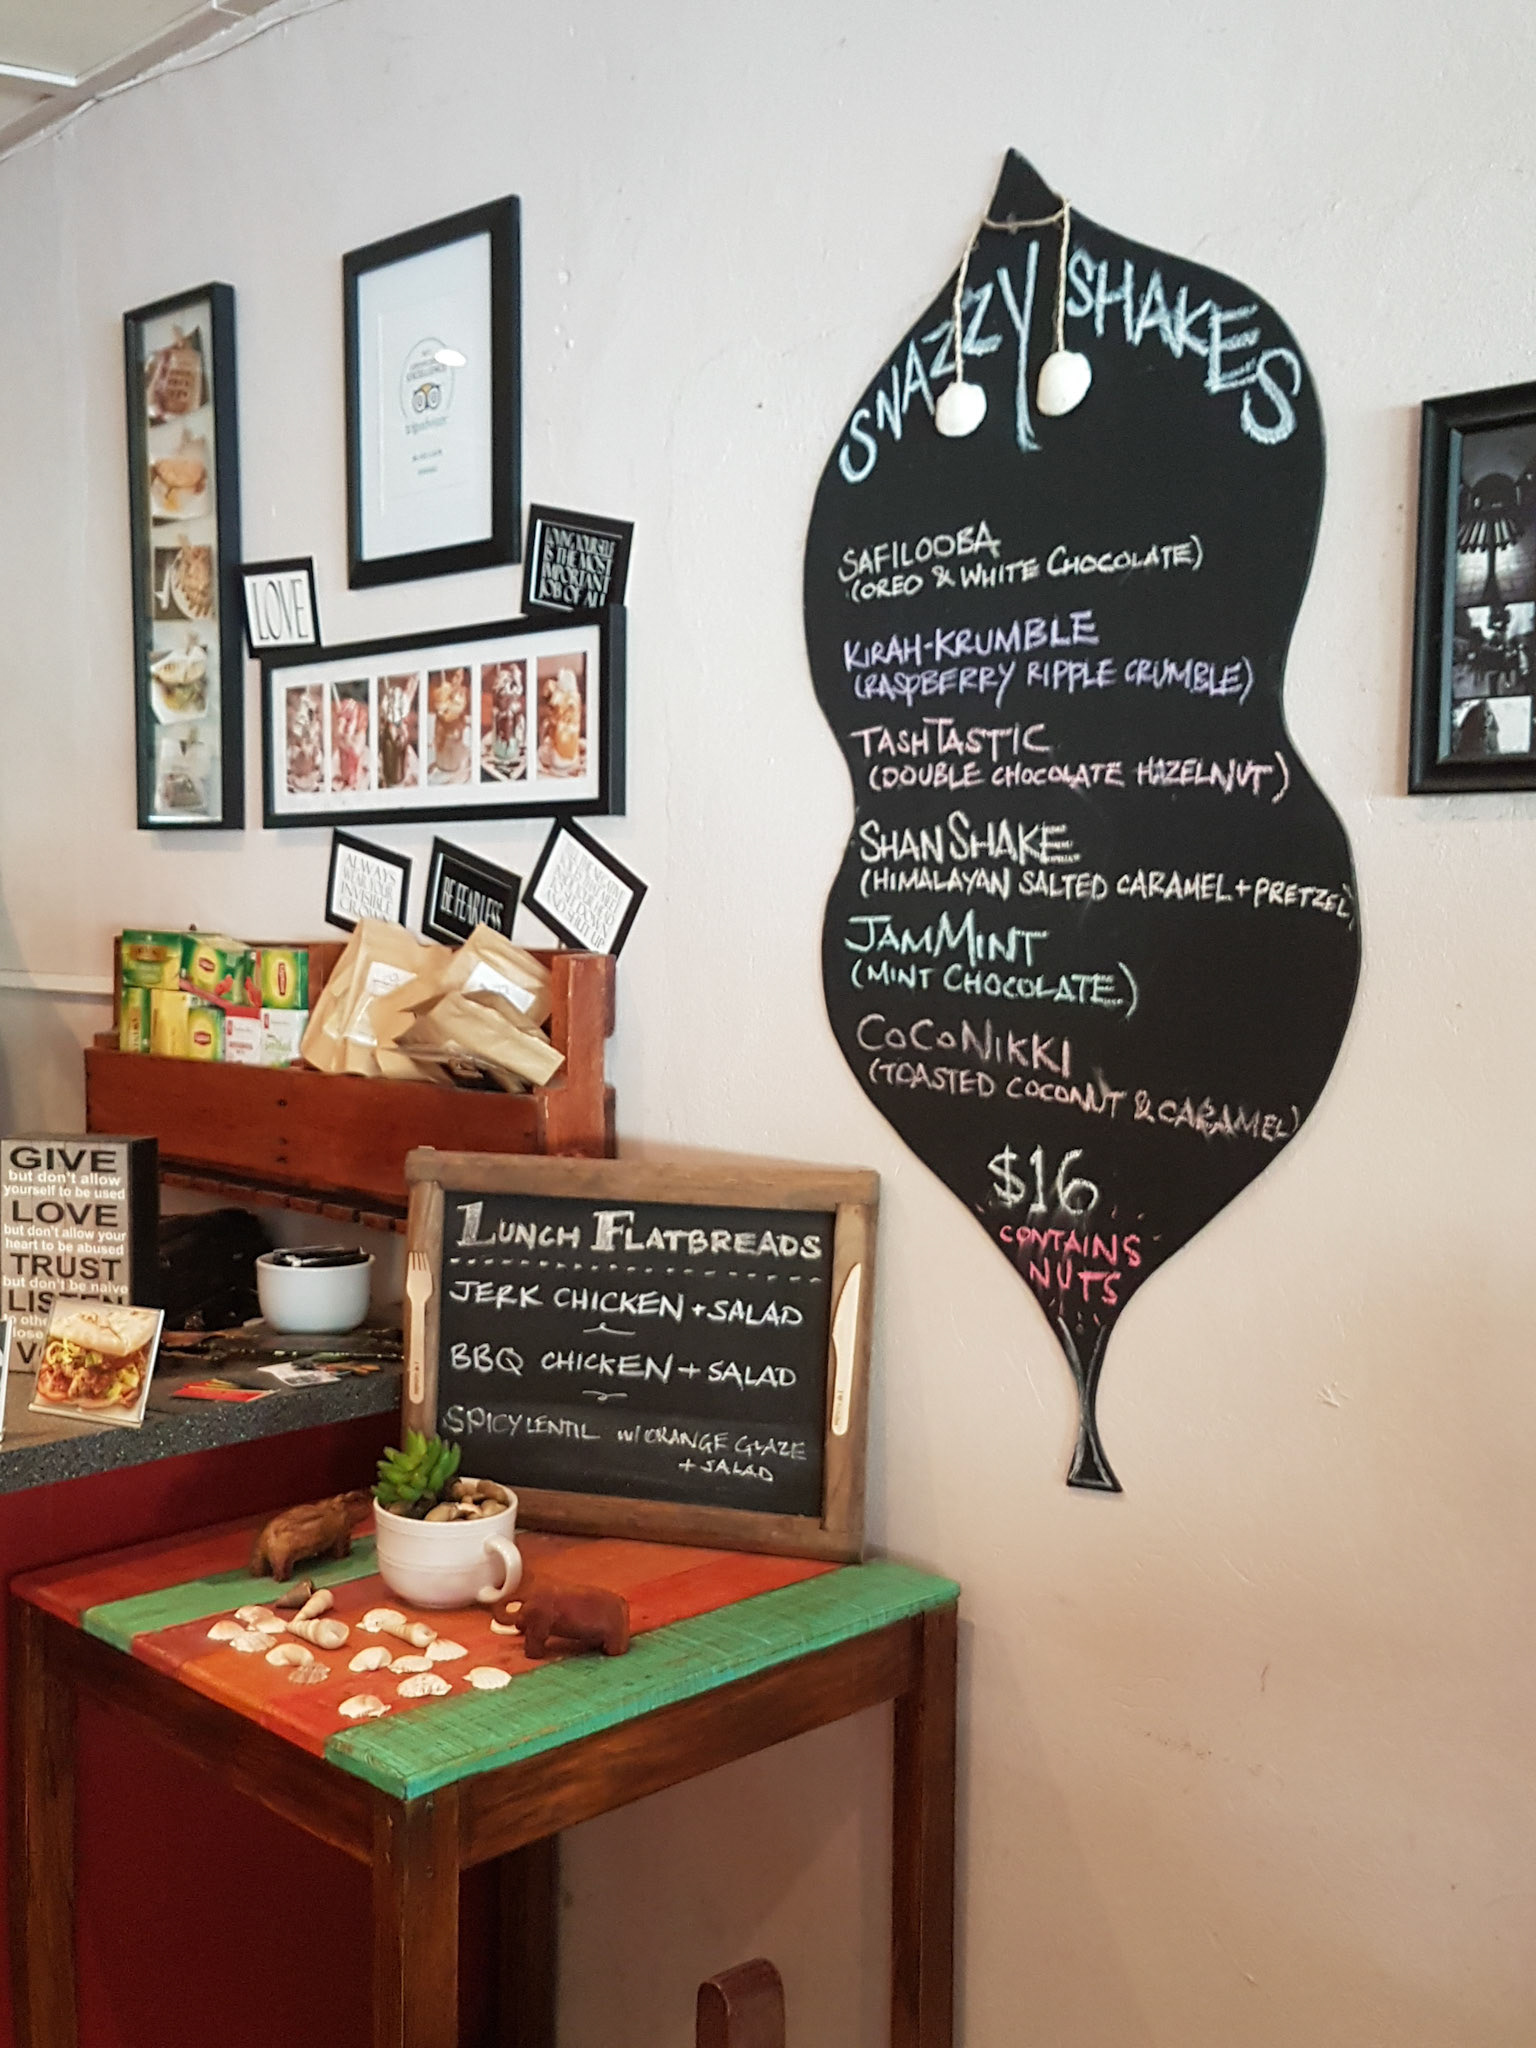 SNAZZY SHAKES
SAFILOOBA
(OREO & WHITE CHOCOLATE)
KIRAH-KRUMBLE
(RASPBERRY RIPPLE CRUMBLE)
TASHTASTIC
(DOUBLE CHOCOLATE HAZELNUT)
SHANSHAKE
(HIMALAYAN SALTED CARAMEL + PRETZEL)
JAMMINT
(MINT CHOCOLATE)
COCONIKKI
(TOASTED COCONUT & CARAMEL)
$16
CONTAINS
NUTS
LOVE
LOVING YOURSELF
IS THE MOST
IMPORTANT
JOB OF ALL
ALWAYS
WEAR YOUR
INVISIBLE
CROWN
BE FEARLESS
AND SHUT UP
tripadvisor
Lipton
Lipton
Lipton
LUNCH FLATBREADS
JERK CHICKEN + SALAD
BBQ CHICKEN + SALAD
SPICY LENTIL w/ ORANGE GLAZE
+ SALAD
GIVE
but don't allow
yourself to be used
LOVE
but don't allow your
heart to be abused
TRUST
but don't be naive
LISTEN